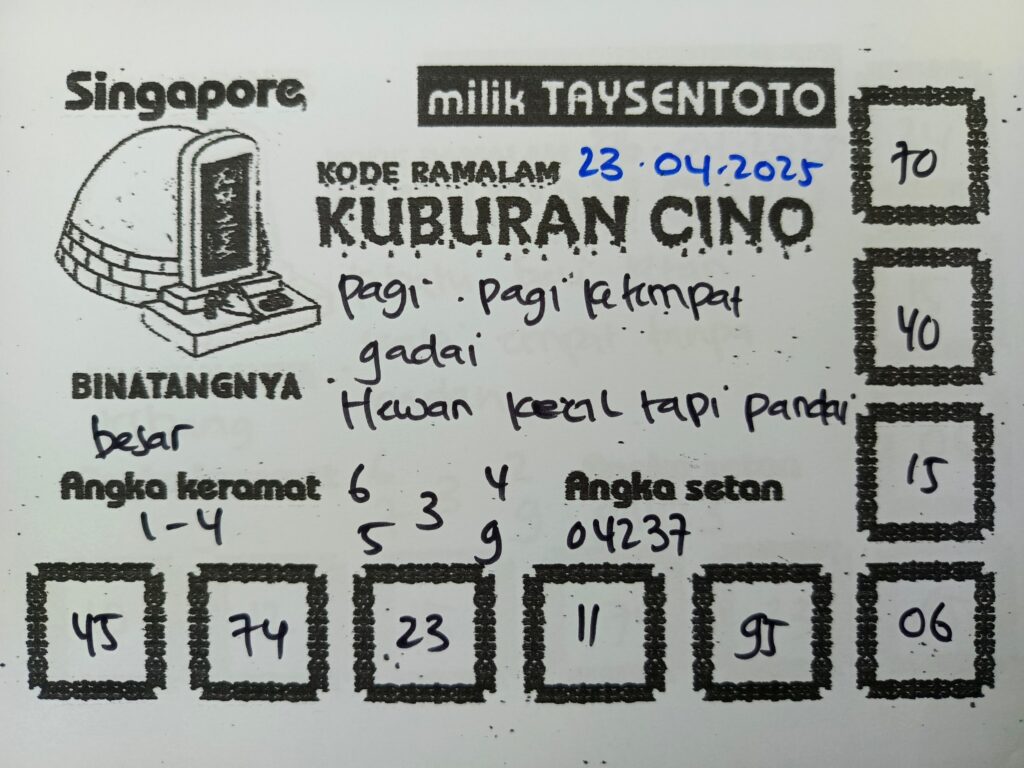 Singapore
milik TAYSENTOTO
KODE RAMALAM 23.04.2025
KUBURAN CINO
pagi . pagi ketempat
gadai
Hewan kecil tapi pandai
BINATANGNYA
besar
Angka keramat
1-4
6 4
3
5 9
Angka setan
04237
70
40
15
45 74 23 11 95 06